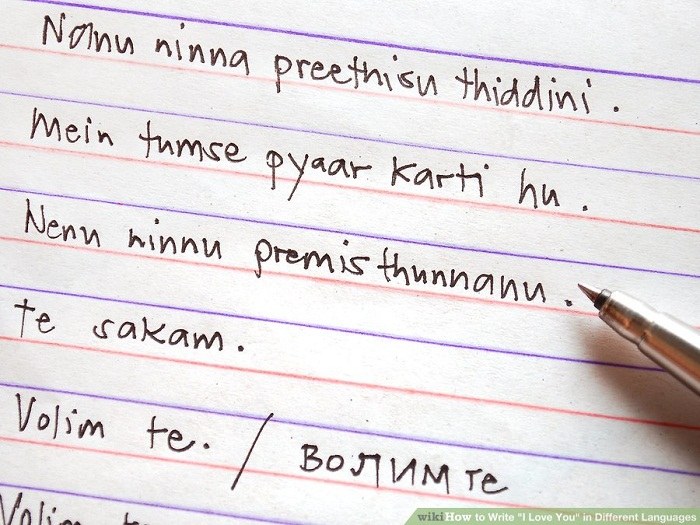 Nanu ninna preethisu thiddini.
Mein tumse pyaar karti hu.
Nenu ninnu premisthunnanu.
te sakam.
Volim te. / ВОЛИМ ТЕ
Volim
wikiHow to Write "I Love You" in Different Languages